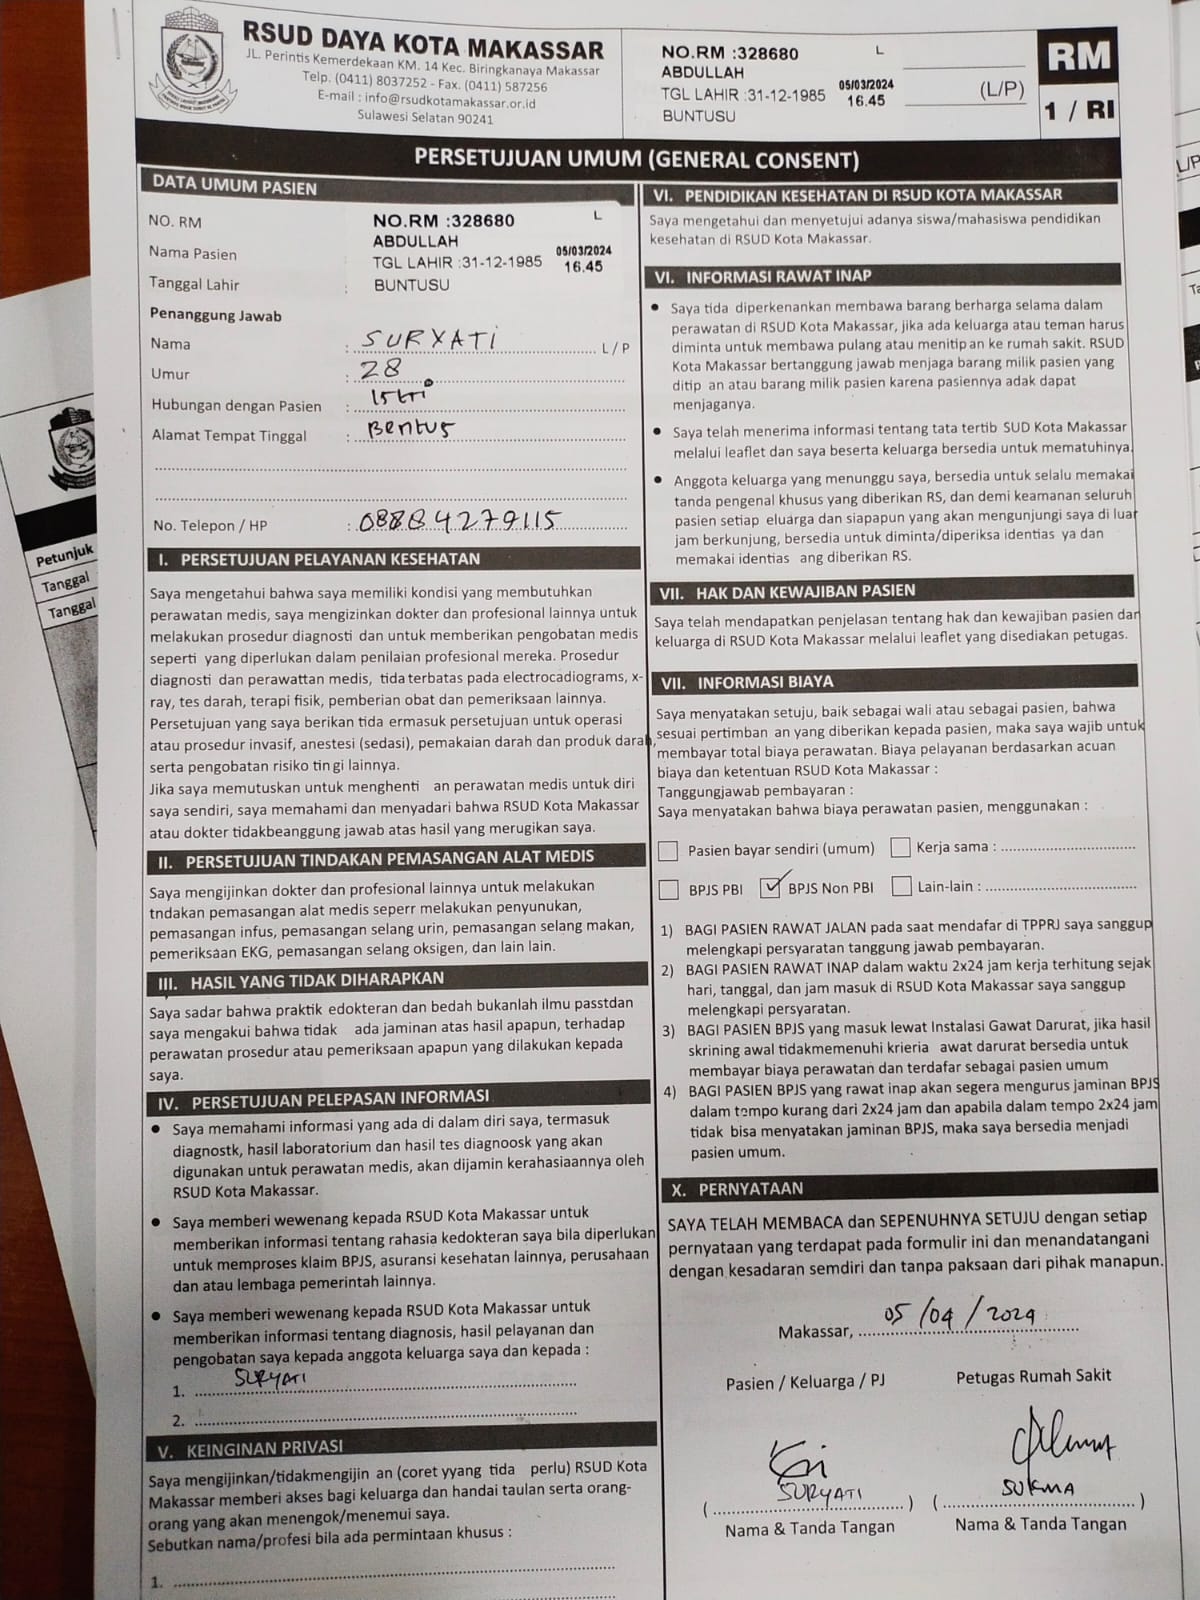 RSUD DAYA KOTA MAKASSAR
JL. Perintis Kemerdekaan KM. 14 Kec. Biringkanaya Makassar
Telp. (0411) 8037252 - Fax. (0411) 587256
E-mail : info@rsudkotamakassar.or.id
Sulawesi Selatan 90241
NO.RM :328680 L
ABDULLAH
TGL LAHIR :31-12-1985 05/03/2024 16.45
BUNTUSU
(L/P)
RM
1 / RI
PERSETUJUAN UMUM (GENERAL CONSENT)
DATA UMUM PASIEN
NO. RM NO.RM :328680 L
Nama Pasien ABDULLAH
TGL LAHIR :31-12-1985 05/03/2024 16.45
Tanggal Lahir : BUNTUSU
Penanggung Jawab
Nama : SURYATI L / P
Umur : 28
Hubungan dengan Pasien : Istri
Alamat Tempat Tinggal : Bentus
No. Telepon / HP : 08884279115
I. PERSETUJUAN PELAYANAN KESEHATAN
Saya mengetahui bahwa saya memiliki kondisi yang membutuhkan
perawatan medis, saya mengizinkan dokter dan profesional lainnya untuk
melakukan prosedur diagnosti dan untuk memberikan pengobatan medis
seperti yang diperlukan dalam penilaian profesional mereka. Prosedur
diagnosti dan perawattan medis, tida terbatas pada electrocadiograms, x-
ray, tes darah, terapi fisik, pemberian obat dan pemeriksaan lainnya.
Persetujuan yang saya berikan tida ermasuk persetujuan untuk operasi
atau prosedur invasif, anestesi (sedasi), pemakaian darah dan produk darah,
serta pengobatan risiko tin gi lainnya.
Jika saya memutuskan untuk menghenti an perawatan medis untuk diri
saya sendiri, saya memahami dan menyadari bahwa RSUD Kota Makassar
atau dokter tidakbeanggung jawab atas hasil yang merugikan saya.
II. PERSETUJUAN TINDAKAN PEMASANGAN ALAT MEDIS
Saya mengijinkan dokter dan profesional lainnya untuk melakukan
tndakan pemasangan alat medis seperr melakukan penyunukan,
pemasangan infus, pemasangan selang urin, pemasangan selang makan,
pemeriksaan EKG, pemasangan selang oksigen, dan lain lain.
III. HASIL YANG TIDAK DIHARAPKAN
Saya sadar bahwa praktik edokteran dan bedah bukanlah ilmu passtdan
saya mengakui bahwa tidak ada jaminan atas hasil apapun, terhadap
perawatan prosedur atau pemeriksaan apapun yang dilakukan kepada
saya.
IV. PERSETUJUAN PELEPASAN INFORMASI
● Saya memahami informasi yang ada di dalam diri saya, termasuk
diagnostk, hasil laboratorium dan hasil tes diagnoosk yang akan
digunakan untuk perawatan medis, akan dijamin kerahasiaannya oleh
RSUD Kota Makassar.
● Saya memberi wewenang kepada RSUD Kota Makassar untuk
memberikan informasi tentang rahasia kedokteran saya bila diperlukan
untuk memproses klaim BPJS, asuransi kesehatan lainnya, perusahaan
dan atau lembaga pemerintah lainnya.
● Saya memberi wewenang kepada RSUD Kota Makassar untuk
memberikan informasi tentang diagnosis, hasil pelayanan dan
pengobatan saya kepada anggota keluarga saya dan kepada :
1. SURYATI
2.
V. KEINGINAN PRIVASI
Saya mengijinkan/tidakmengijin an (coret yyang tida perlu) RSUD Kota
Makassar memberi akses bagi keluarga dan handai taulan serta orang-
orang yang akan menengok/menemui saya.
Sebutkan nama/profesi bila ada permintaan khusus :
1.
VI. PENDIDIKAN KESEHATAN DI RSUD KOTA MAKASSAR
Saya mengetahui dan menyetujui adanya siswa/mahasiswa pendidikan
kesehatan di RSUD Kota Makassar.
VI. INFORMASI RAWAT INAP
● Saya tida diperkenankan membawa barang berharga selama dalam
perawatan di RSUD Kota Makassar, jika ada keluarga atau teman harus
diminta untuk membawa pulang atau menitip an ke rumah sakit. RSUD
Kota Makassar bertanggung jawab menjaga barang milik pasien yang
ditip an atau barang milik pasien karena pasiennya adak dapat
menjaganya.
● Saya telah menerima informasi tentang tata tertib SUD Kota Makassar
melalui leaflet dan saya beserta keluarga bersedia untuk mematuhinya.
● Anggota keluarga yang menunggu saya, bersedia untuk selalu memakai
tanda pengenal khusus yang diberikan RS, dan demi keamanan seluruh
pasien setiap eluarga dan siapapun yang akan mengunjungi saya di luar
jam berkunjung, bersedia untuk diminta/diperiksa identias ya dan
memakai identias ang diberikan RS.
VII. HAK DAN KEWAJIBAN PASIEN
Saya telah mendapatkan penjelasan tentang hak dan kewajiban pasien dan
keluarga di RSUD Kota Makassar melalui leaflet yang disediakan petugas.
VII. INFORMASI BIAYA
Saya menyatakan setuju, baik sebagai wali atau sebagai pasien, bahwa
sesuai pertimban an yang diberikan kepada pasien, maka saya wajib untuk
membayar total biaya perawatan. Biaya pelayanan berdasarkan acuan
biaya dan ketentuan RSUD Kota Makassar :
Tanggungjawab pembayaran :
Saya menyatakan bahwa biaya perawatan pasien, menggunakan :
Pasien bayar sendiri (umum) Kerja sama :
BPJS PBI ✓ BPJS Non PBI Lain-lain :
1) BAGI PASIEN RAWAT JALAN pada saat mendafar di TPPRJ saya sanggup
melengkapi persyaratan tanggung jawab pembayaran.
2) BAGI PASIEN RAWAT INAP dalam waktu 2x24 jam kerja terhitung sejak
hari, tanggal, dan jam masuk di RSUD Kota Makassar saya sanggup
melengkapi persyaratan.
3) BAGI PASIEN BPJS yang masuk lewat Instalasi Gawat Darurat, jika hasil
skrining awal tidakmemenuhi krieria awat darurat bersedia untuk
membayar biaya perawatan dan terdafar sebagai pasien umum
4) BAGI PASIEN BPJS yang rawat inap akan segera mengurus jaminan BPJS
dalam tempo kurang dari 2x24 jam dan apabila dalam tempo 2x24 jam
tidak bisa menyatakan jaminan BPJS, maka saya bersedia menjadi
pasien umum.
X. PERNYATAAN
SAYA TELAH MEMBACA dan SEPENUHNYA SETUJU dengan setiap
pernyataan yang terdapat pada formulir ini dan menandatangani
dengan kesadaran semdiri dan tanpa paksaan dari pihak manapun.
Makassar, 05/04/2024
Pasien / Keluarga / PJ Petugas Rumah Sakit
(SURYATI) (SUKMA)
Nama & Tanda Tangan Nama & Tanda Tangan
Petunjuk
Tanggal
Tanggal
L/P